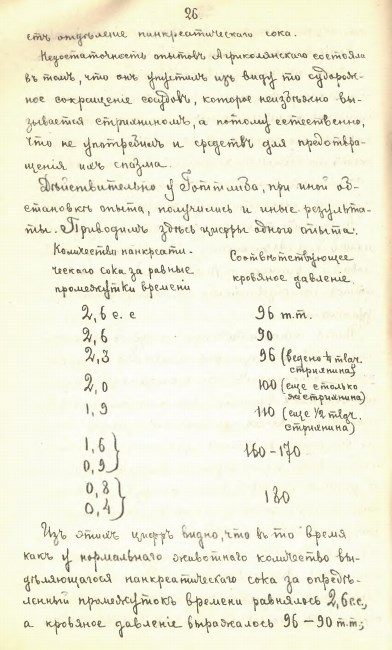 26
етъ отдѣленіе панкреатическаго сока.
Недостаточность опытовъ Агриколянскаго состояла
въ томъ, что онъ упустилъ изъ виду то судорож-
ное сокращеніе сосудовъ, которое неизбѣжно вы-
зывается стрихниномъ, а потому естественно,
что не употребилъ и средствъ для предотвра-
щенія ихъ спазма.
Дѣйствительно у Готтлиба, при иной об-
становкѣ опыта, получились и иные результа-
ты. Приводимъ здѣсь цифры одного опыта.
Количество панкреати-
ческаго сока за равные
промежутки времени
Соотвѣтствующее
кровяное давленіе.
2,6 с. с 96 m.m.
2,6 90
2,3 96 (введено
стрихнина)
2,0 100 (еще столько
же стрихнина)
1,9 110 (еще 1/2
стрихнина)
1,6
0,9 160-170
0,8
0,4 180
Изъ этихъ цифръ видно, что въ то время
какъ у нормальнаго животнаго количество вы-
дѣляющагося панкреатическаго сока за опредѣ-
ленный промежутокъ времени равнялось 2,6 с.с.,
а кровяное давленіе выражалось 96-90 m.m;